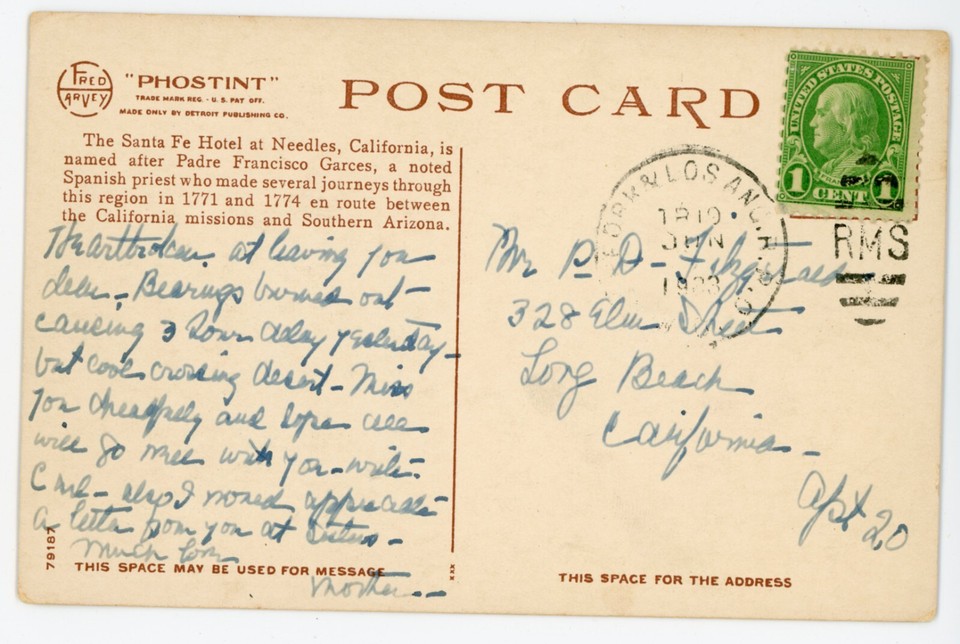 FRED
HARVEY
"PHOSTINT"
TRADE MARK REG. - U.S. PAT OFF.
MADE ONLY BY DETROIT PUBLISHING CO.
POST CARD
The Santa Fe Hotel at Needles, California, is
named after Padre Francisco Garces, a noted
Spanish priest who made several journeys through
this region in 1771 and 1774 en route between
the California missions and Southern Arizona.
Heartbroken at leaving you
dear - Bearings burned out -
causing 3 hour delay yesterday -
but cool crossing desert - Miss
you dreadfully and hope all
will go well with you - write
Carl - also I would appreciate
a letter from you at Sisters -
Much love
Mother -
79187
THIS SPACE MAY BE USED FOR MESSAGE
XXX
UNITED STATES POSTAGE
1 CENT 1
& LOS ANG. R.P.O.
JUN
RMS
Mr P. D. Fitzgerald
328 Elm Street
Long Beach
California -
Apt 20
THIS SPACE FOR THE ADDRESS